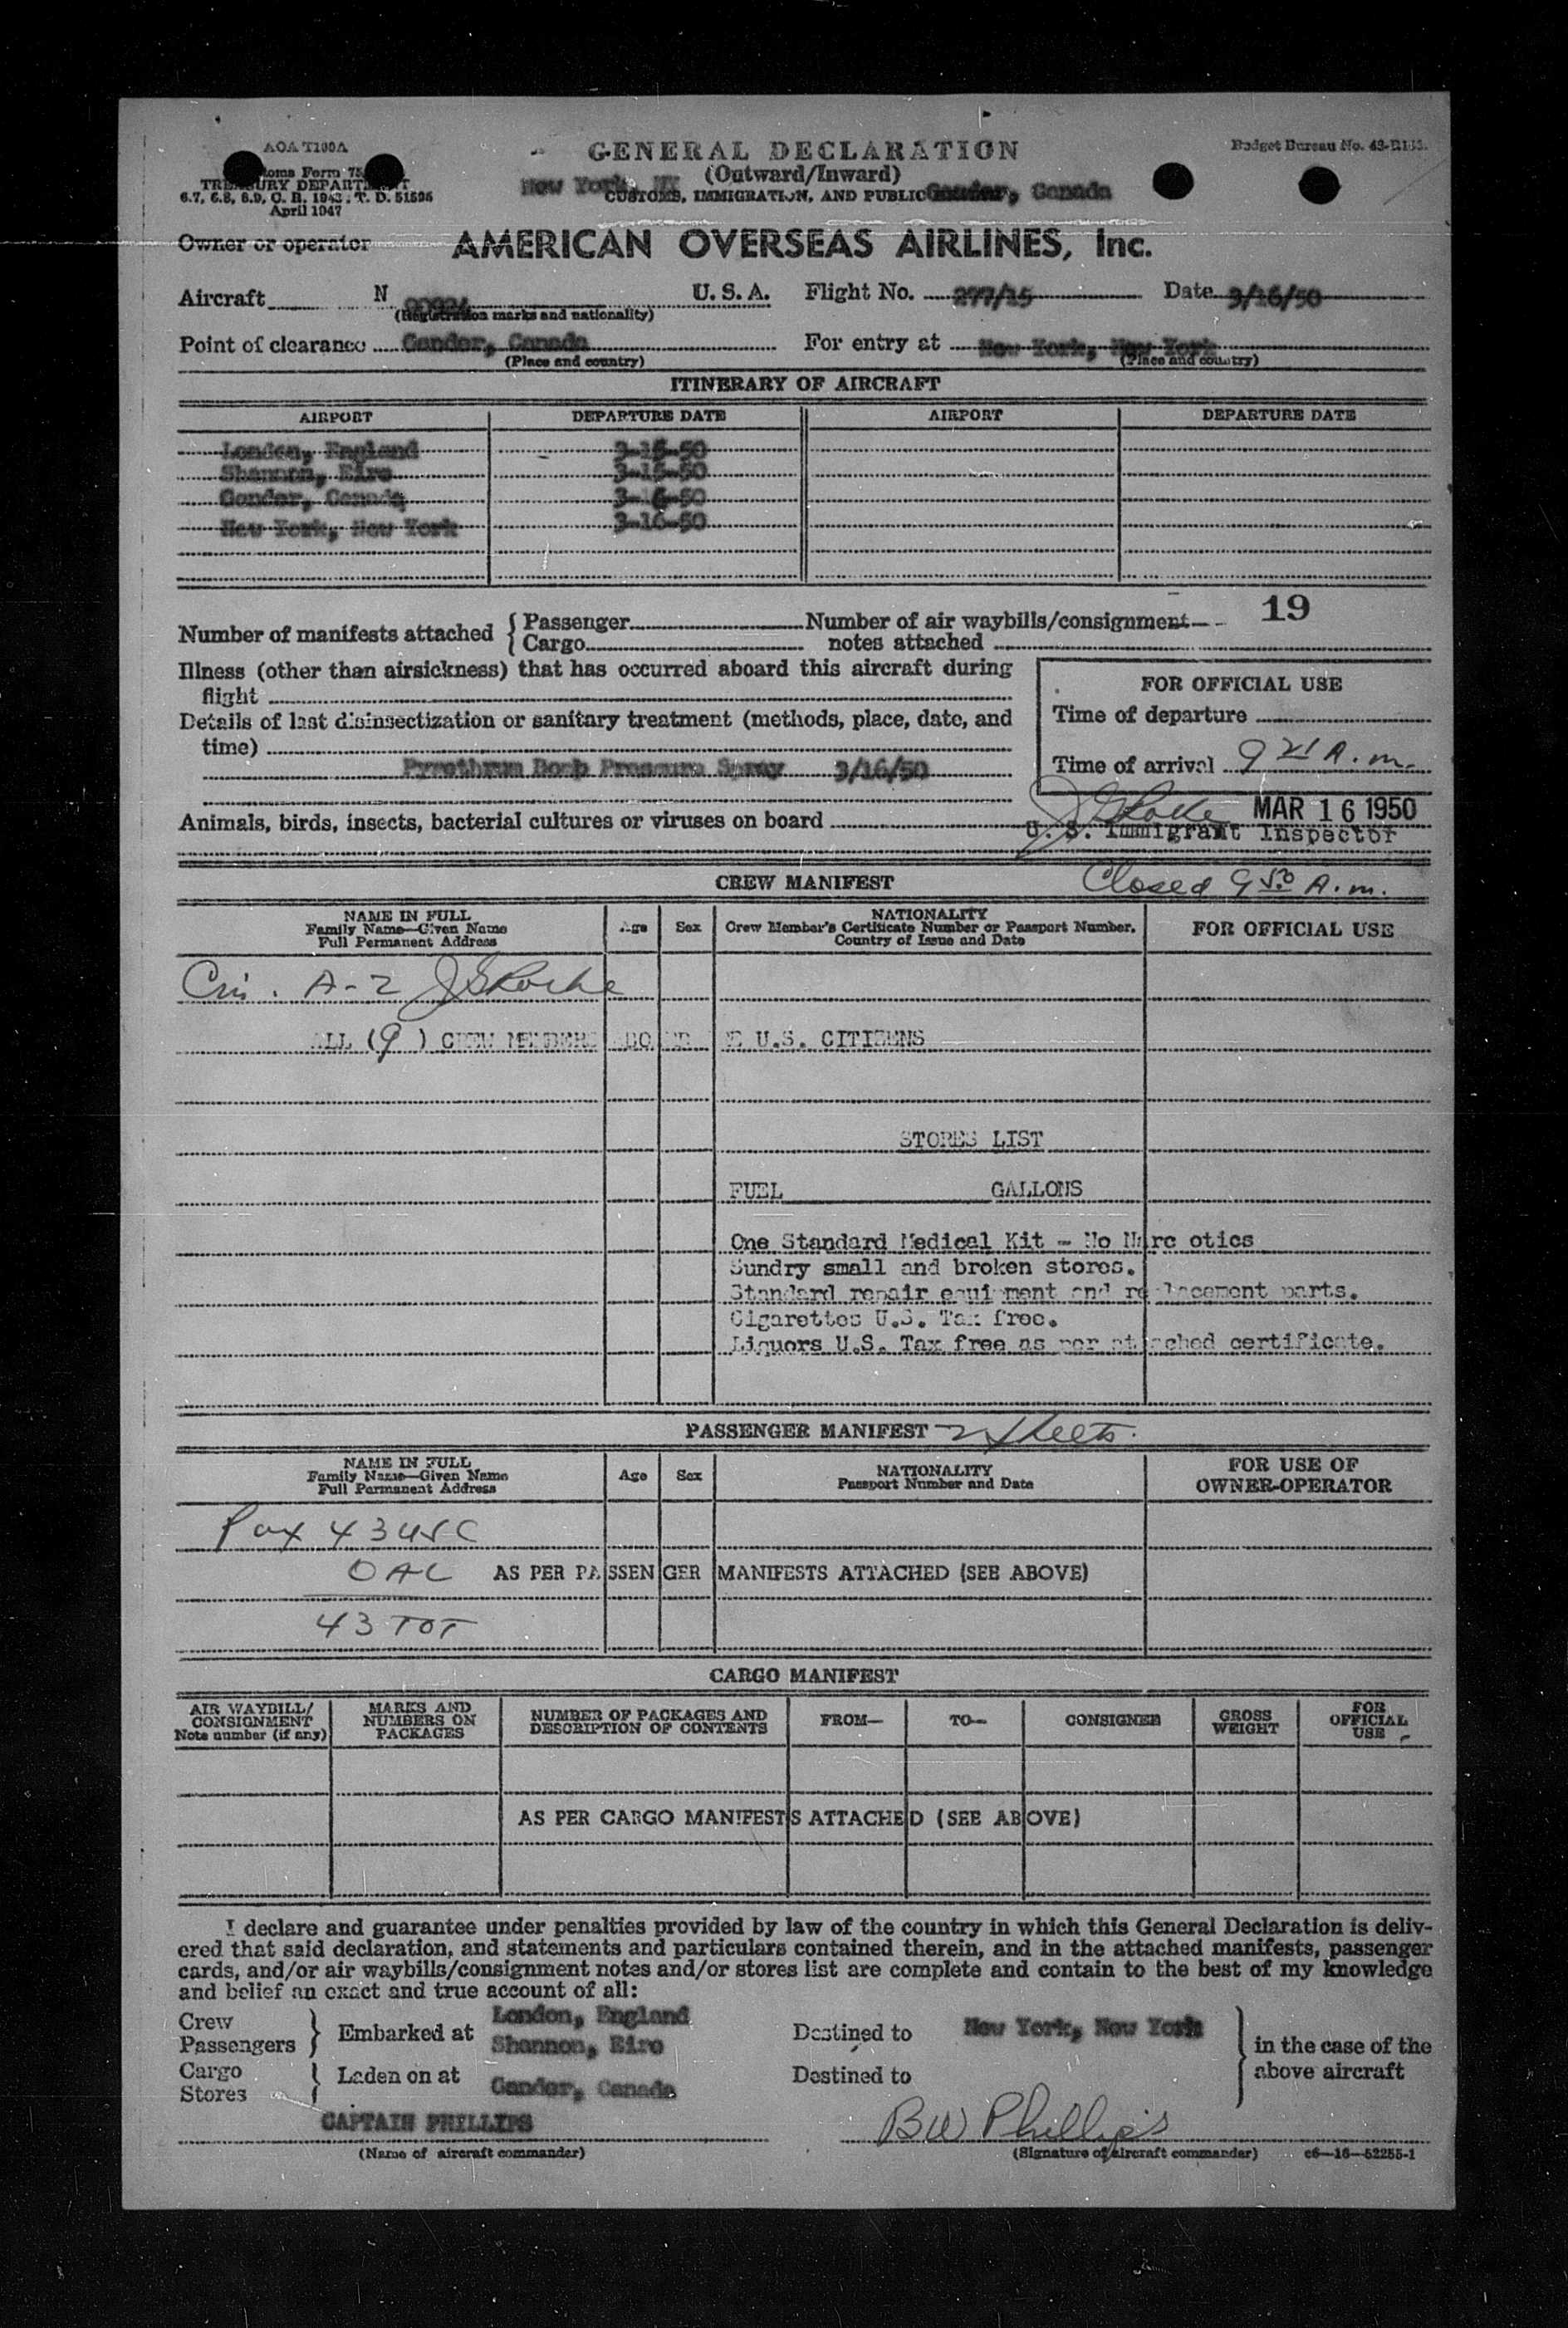 AOA T100A
GENERAL DECLARATION
Budget Bureau No. 43-R
(Outward/Inward)
TREASURY DEPARTMENT
New York, NY
Gander, Canada
6.7, 6.8, 6.9, C. R. 1943, T. D. 51595
CUSTOMS, IMMIGRATION, AND PUBLIC
April 1947
Owner or operator AMERICAN OVERSEAS AIRLINES, Inc.
Aircraft N U.S.A. Flight No. 277/15 Date 3/16/50
(Registration marks and nationality)
Point of clearance Gander, Canada For entry at New York, New York
(Place and country) (Place and country)
ITINERARY OF AIRCRAFT
AIRPORT DEPARTURE DATE AIRPORT DEPARTURE DATE
London, England 3-15-50
Shannon, Eire 3-15-50
Gander, Canada 3-16-50
New York, New York 3-16-50
19
Number of manifests attached { Passenger Number of air waybills/consignment
Cargo notes attached
Illness (other than airsickness) that has occurred aboard this aircraft during
flight
FOR OFFICIAL USE
Details of last disinsectization or sanitary treatment (methods, place, date, and
time)
Time of departure
Pyrethrum Bomb Pressure Spray 3/16/50
Time of arrival 9 21 A.m.
MAR 16 1950
Animals, birds, insects, bacterial cultures or viruses on board
U. S. Immigrant Inspector
CREW MANIFEST
Closed 9 50 A.m.
NAME IN FULL
Family Name—Given Name
Full Permanent Address
Age Sex
NATIONALITY
Crew Member's Certificate Number or Passport Number,
Country of Issue and Date
FOR OFFICIAL USE
A-2 JSRoche
ALL (9) CREW MEMBERS U.S. CITIZENS
STORES LIST
FUEL GALLONS
One Standard Medical Kit - No Narc otics
Sundry small and broken stores.
Standard repair equipment and replacement parts.
Cigarettes U.S. Tax free.
Liquors U.S. Tax free as per attached certificate.
PASSENGER MANIFEST 2 sheets.
NAME IN FULL
Family Name—Given Name
Full Permanent Address
Age Sex
NATIONALITY
Passport Number and Date
FOR USE OF
OWNER-OPERATOR
Pax 43 USC
0 AL AS PER PASSENGER MANIFESTS ATTACHED (SEE ABOVE)
43 TOT
CARGO MANIFEST
AIR WAYBILL/
CONSIGNMENT
Note number (if any)
MARKS AND
NUMBERS ON
PACKAGES
NUMBER OF PACKAGES AND
DESCRIPTION OF CONTENTS
FROM— TO— CONSIGNEE
GROSS
WEIGHT
FOR
OFFICIAL
USE
AS PER CARGO MANIFESTS ATTACHED (SEE ABOVE)
I declare and guarantee under penalties provided by law of the country in which this General Declaration is deliv-
ered that said declaration, and statements and particulars contained therein, and in the attached manifests, passenger
cards, and/or air waybills/consignment notes and/or stores list are complete and contain to the best of my knowledge
and belief an exact and true account of all:
Crew
Passengers } Embarked at London, England
Shannon, Eire
Destined to New York, New York
in the case of the
above aircraft
Cargo
Stores } Laden on at Gander, Canada
Destined to
CAPTAIN PHILLIPS
BW Phillips
(Name of aircraft commander) (Signature of aircraft commander) c6—16—52255-1